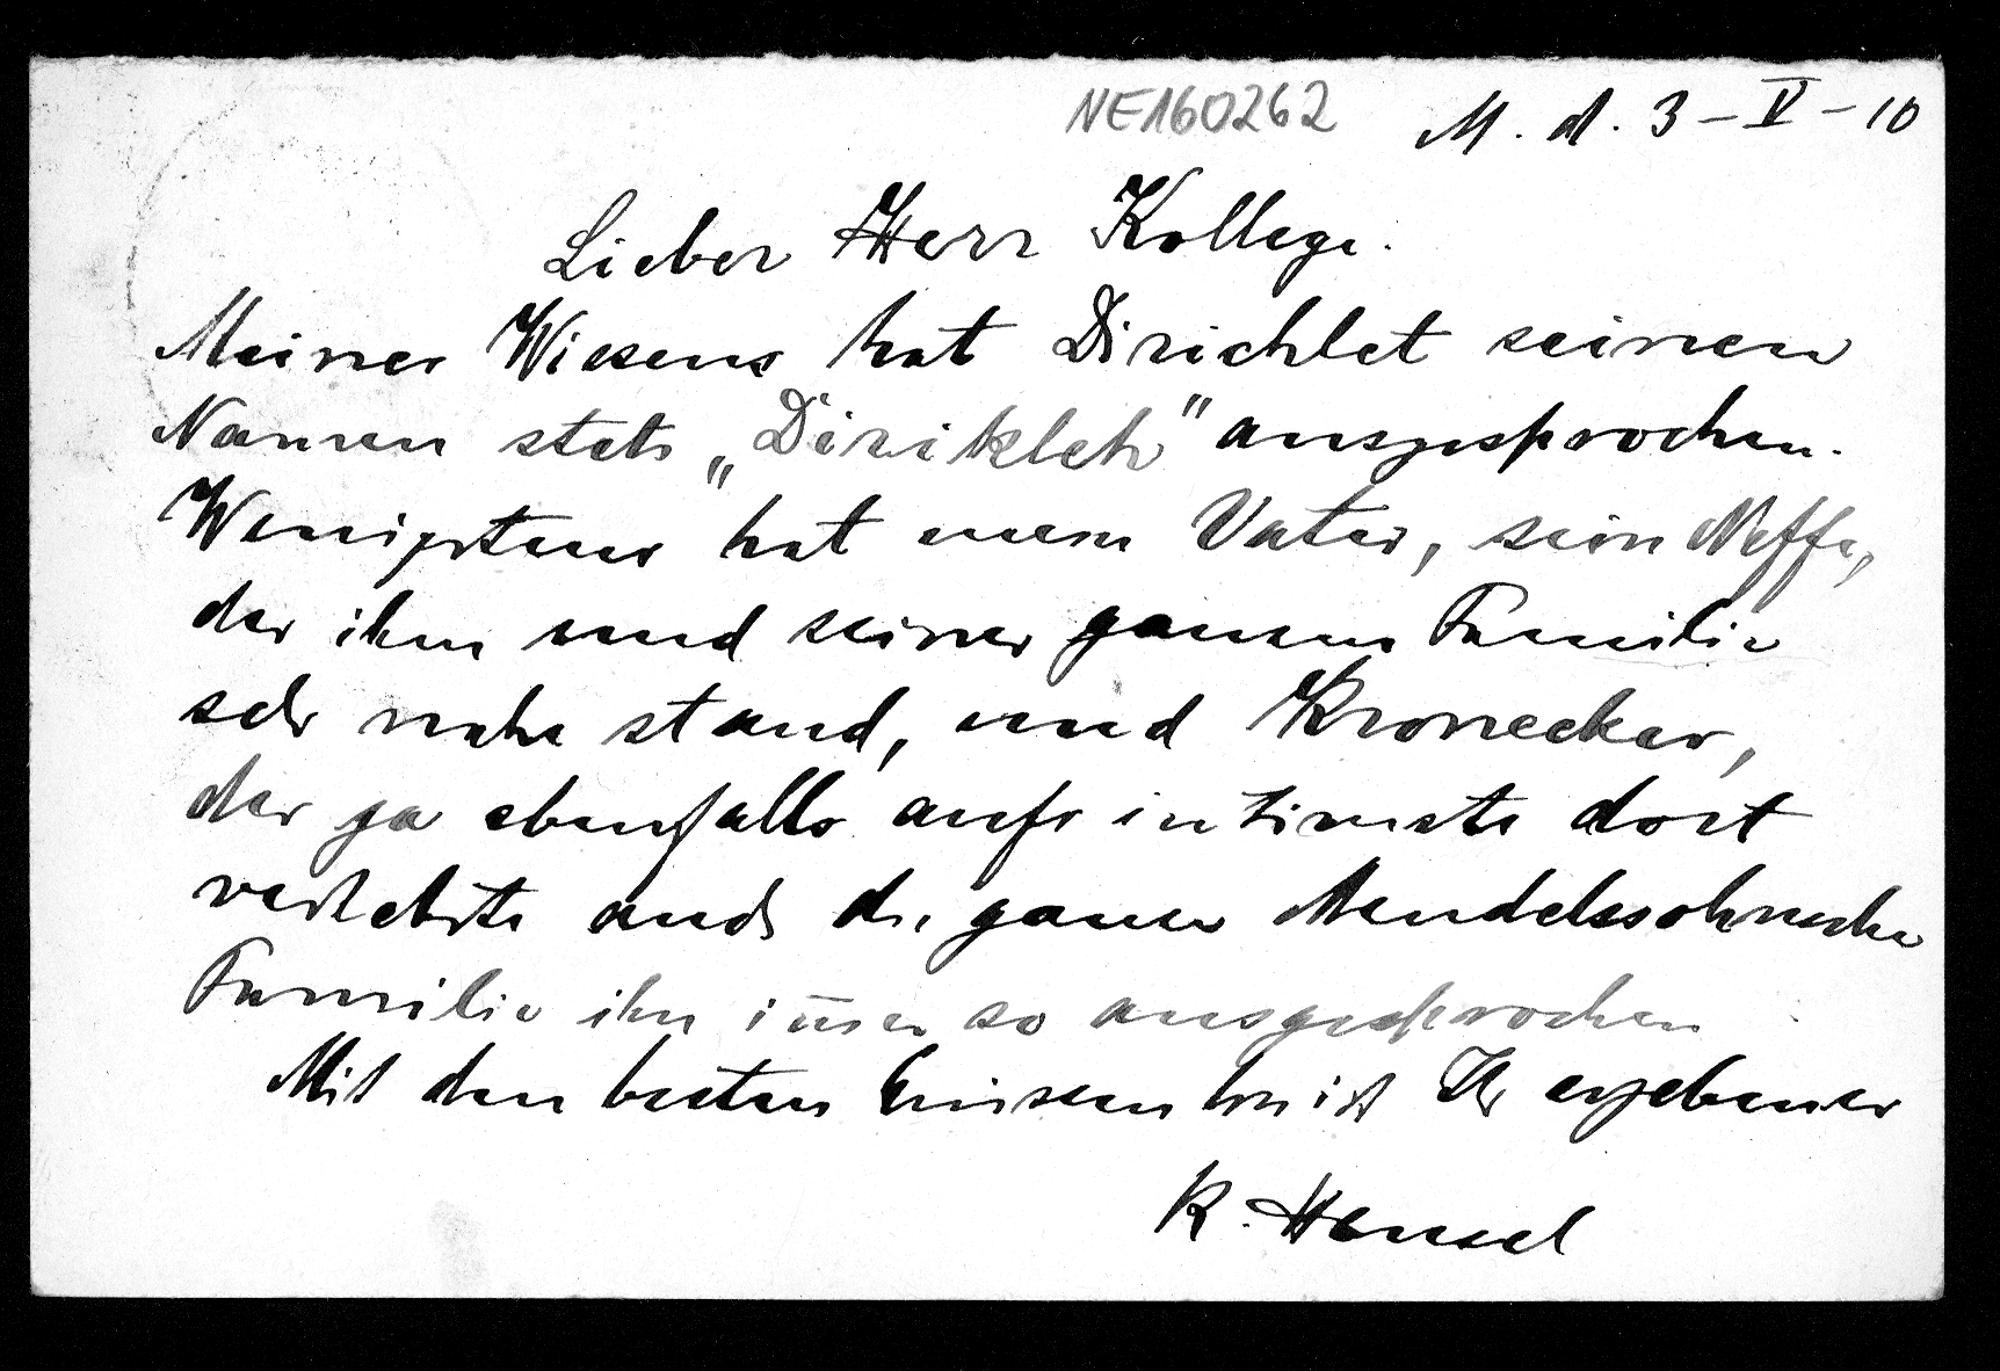 NE160262 M. d. 3-V-10
Lieber Herr Kollege.
Meines Wissens hat Dirichlet seinen
Namen stets „Dirikleh" ausgesprochen.
Wenigstens hat mein Vater, sein Neffe,
der ihm und seiner ganzen Familie
sehr nahe stand, und Kronecker,
der ja ebenfalls aufs intimste dort
verkehrte auch die ganze Mendelssohnsche
Familie ihn im̄er so ausgesprochen
Mit den besten Grüssen bin ich Ihr ergebener
K. Hensel